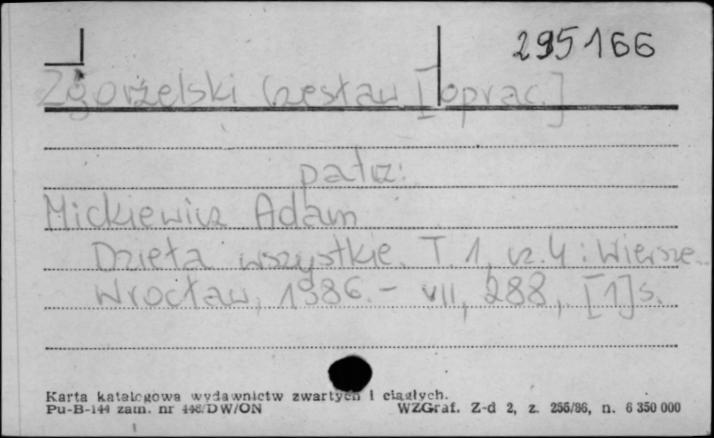 295166
Zgorzelski Czesław [oprac.]
patrz:
Mickiewicz Adam
Dzieła wszystkie. T. 1, cz. 4 : Wiersze..
Wrocław, 1986. - VII, 288, [1] s.
Karta katalogowa wydawnictw zwartych i ciągłych.
Pu-B-144 zam. nr 448/DW/ON WZGraf. Z-d 2, z. 255/86, n. 6 350 000